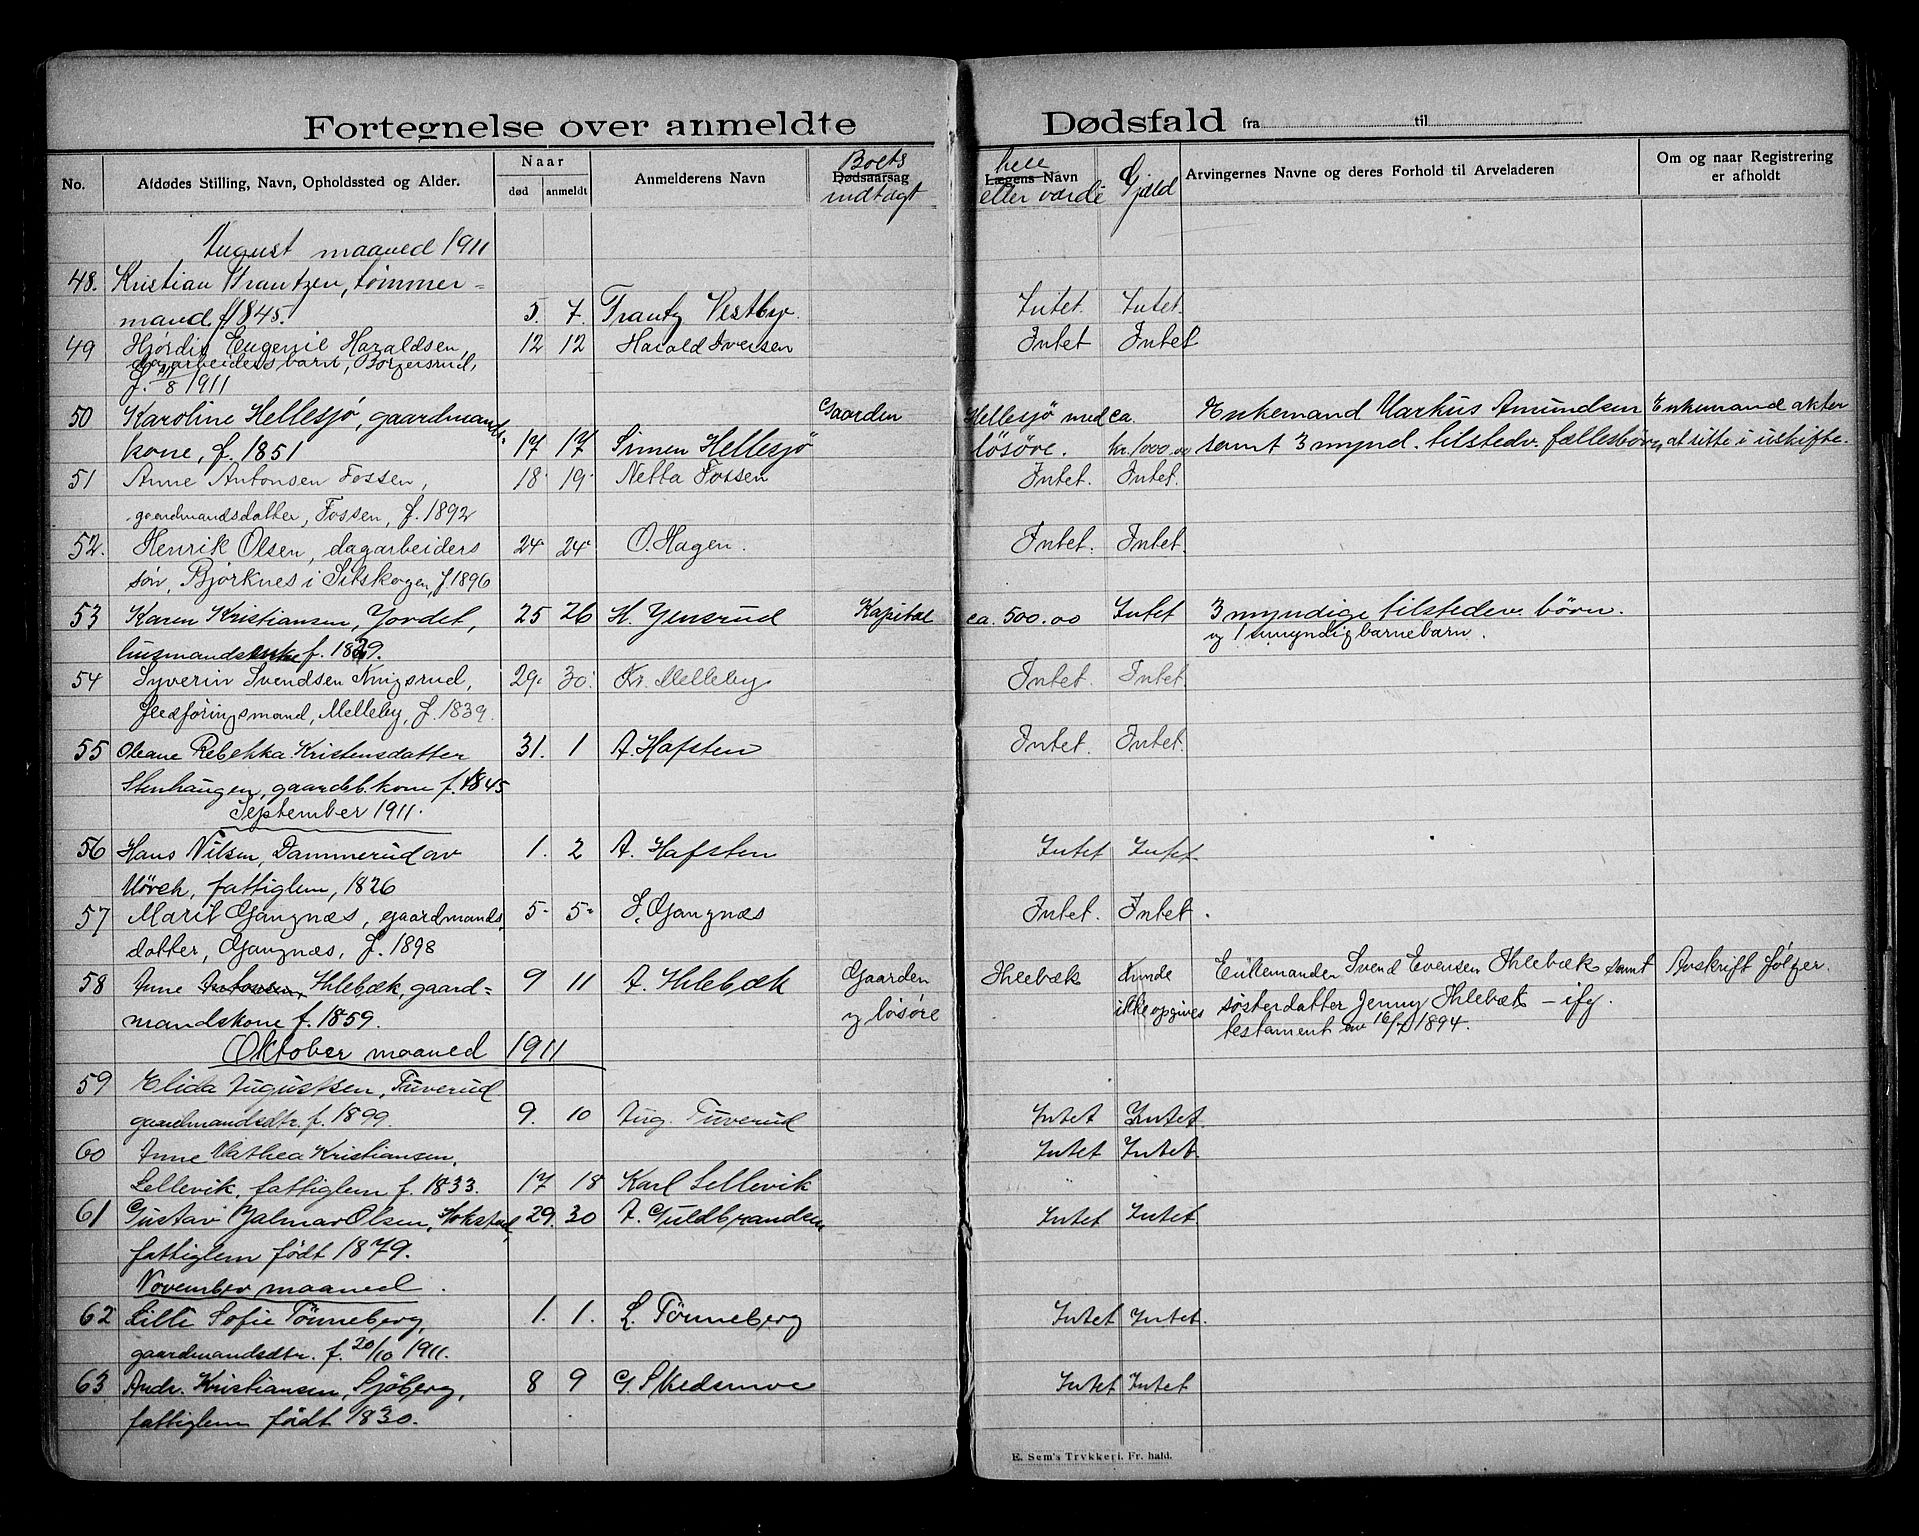 Fortegnelse over anmeldte Dødsfald fra til
No. Afdødes Stilling, Navn, Opholdssted og Alder. Naar død anmeldt Anmelderens Navn Dødsaarsag Boets indtægt Lægens Navn eller værdi Gjæld Arvingernes Navne og deres Forhold til Arveladeren Om og naar Registrering er afholdt
August maaned 1911
48. Kristian Frantzen, tømmer=
mand f 1845. 5. 7. Frantz Vestby. Intet. Intet.
49 Hjørdis Eugenie Haraldsen 12 12 Harald Iversen Intet Intet
dagarbeidersbarn, Børgersrud,
f. /8 1911
50 Karoline Hellesjø, gaardmands- Gaarden Hellesjø med ca. Enkemand Markus Amundsen Enkemand akter
kone, f. 1851 17 17 Simen Hellesjø løsøre. kr. 1000.00 samt 3 mynd. tilstedev. fællesbørn at sitte i uskifte.
51 Anne Antonsen Fossen, 18. 19. Netta Fossen Intet. Intet.
gaardmandsdatter, Fossen, f. 1892
52. Henrik Olsen, dagarbeiders 24 24 O. Hagen. Intet. Intet.
søn, Bjørknes i Setskogen, f 1896
53 Karen Kristiansen, Jordet, 25 26 H. Jensrud Kapital ca. 500.00 Intet 3 myndige tilstedev. børn.
husmandsenke f. 1829. og 1 umyndig barnebarn.
54 Syverin Svendsen Kingsrud, 29. 30. Kr. Melleby Intet. Intet.
Ledføringsmand, Melleby, f. 1839.
55 Oleane Rebekka Kristensdatter 31. 1 A. Hafsten Intet. Intet.
Stenhaugen, gaardb. kone f. 1845
September 1911.
56 Hans Nilsen, Dammerud av 1. 2 A. Hafsten Intet Intet.
Mörch, fattiglem, 1826
57 Marit Gangnæs, gaardmands 5- 5- J. Gangnæs Intet. Intet.
datter, Gangnæs, f. 1898
58 Anne Antonsen, Ihlebæk, gaard= 9 11 A. Ihlebæk Gaarden Ihlebæk Kunde Enkemanden Svend Evensen Ihlebæk samt Avskrift følger.
mandskone f. 1859. og løsøre ikke opgives søsterdatter Jenny Ihlebæk – ifg.
testament av 16/7 1894.
Oktober maaned 1911
59 Elida Augustsen, Tuverud
gaardmandsdtr. f. 1899. 9. 10 Aug. Tuverud Intet Intet.
60 Anne Mathea Kristiansen, Intet Intet.
Lellevik, fattiglem f. 1833. 17 18 Karl Lellevik
61 Gustav Jalmar Olsen, Hokstad, 29. 30 A. Guldbrandsen Intet Intet.
fattiglem født 1879.
November maaned.
62 Lilli Sofie Tønneberg, 1. 1. L. Tønneberg Intet Intet.
gaardmandsdtr. f. 20/10 1911.
63 Andr. Kristiansen, Sjøberg, 8 9 G. Skedsmoe Intet Intet
fattiglem født 1830.
E. Sem's Trykkeri. Fr. hald.